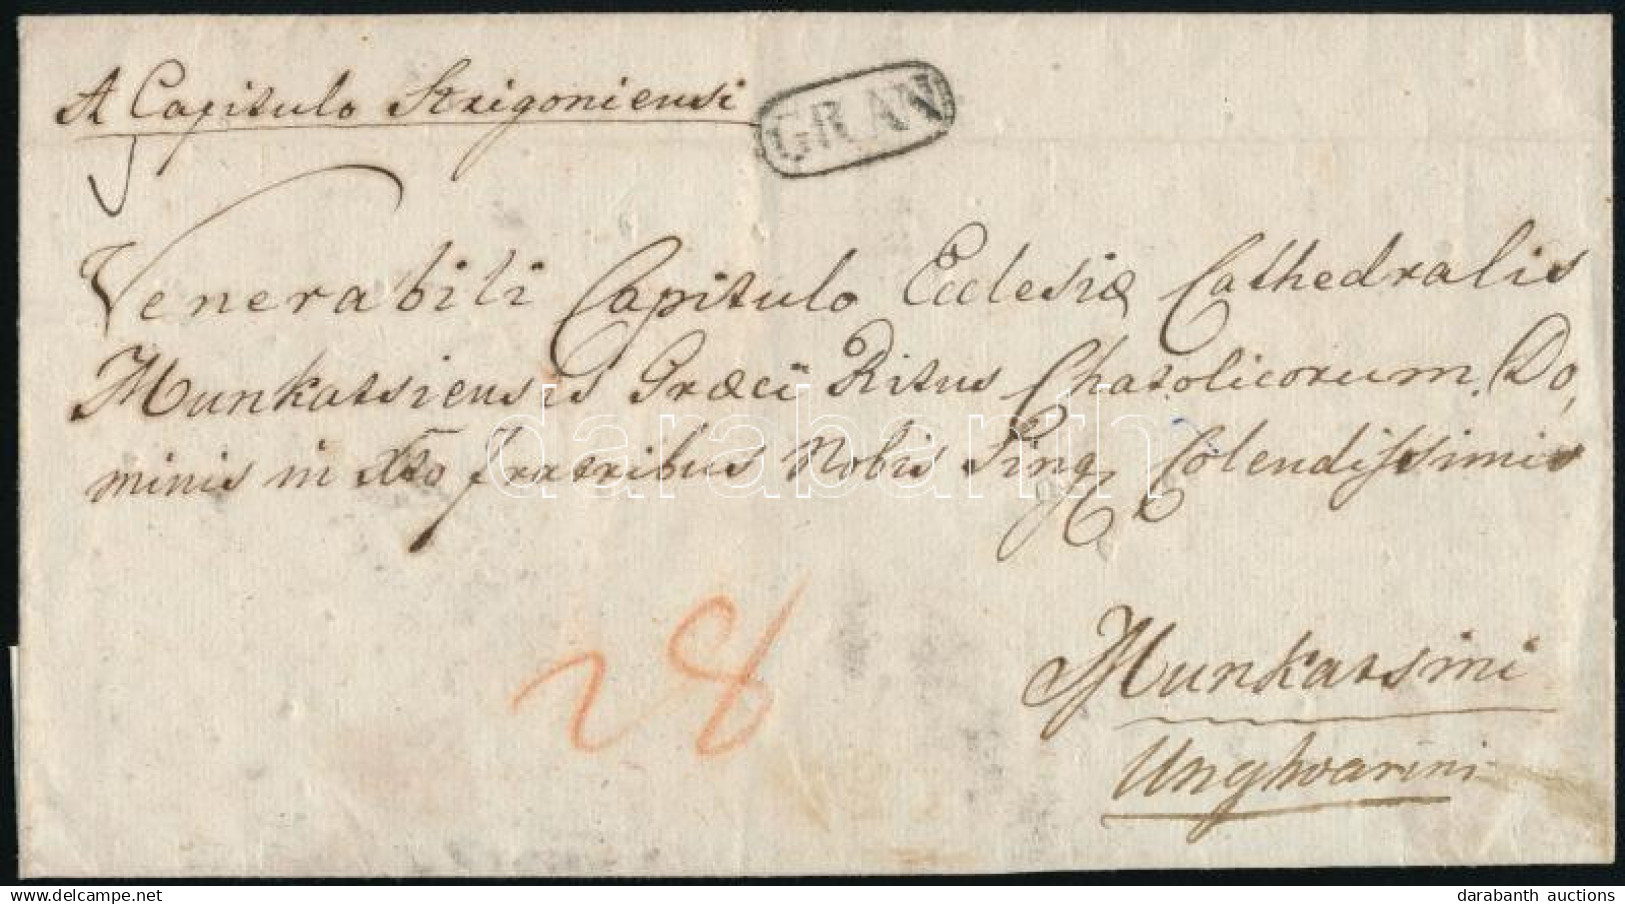 A Capitulo Strigoniensi
GRAN
Venerabili Capitulo Ecclesiæ Cathedralis
Munkatsiensis Græci Ritus Chatolicorum. Do,
minis in Xto fratribus Nobis Sing Colendissimis
28
Munkatsini
Unghvarini
darabanth
delcampe.net
darabanth auctions